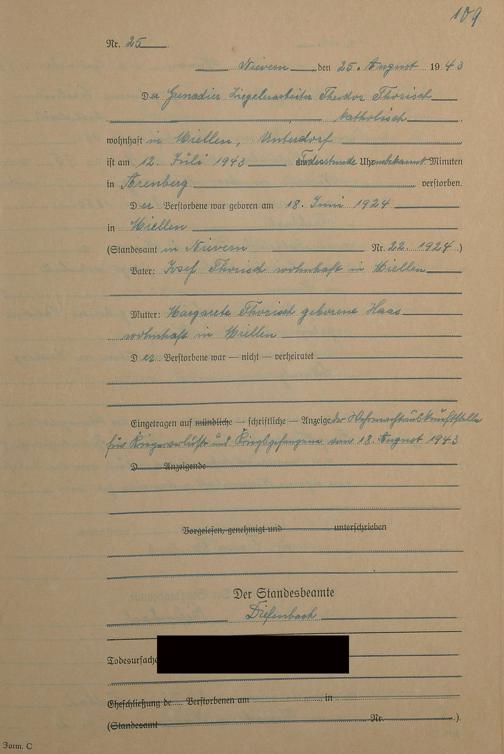 109
Nr. 25
Nievern den 25. August 1943
Der Grenadier Ziegeleiarbeiter Theodor Thorisch
katholisch
wohnhaft in Miellen, Unterdorf
ist am 12. Juli 1943 Todesstunde Uhr unbekannt Minuten
in Arenberg verstorben.
Der Verstorbene war geboren am 18. Juni 1924
in Miellen
(Standesamt in Nievern Nr. 22. 1924.)
Vater: Josef Thorisch wohnhaft in Miellen
Mutter: Margarete Thorisch geborene Haas
wohnhaft in Miellen
Der Verstorbene war — nicht — verheiratet
Eingetragen auf mündliche — schriftliche — Anzeige der Wehrmachtauskunftstelle
für Kriegerverluste und Kriegsgefangene vom 18. August 1943
D Anzeigende
Vorgelesen, genehmigt und unterschrieben
Der Standesbeamte
Diefenbach
Todesursache
Eheschließung de Verstorbenen am in
(Standesamt Nr. ).
Form. C